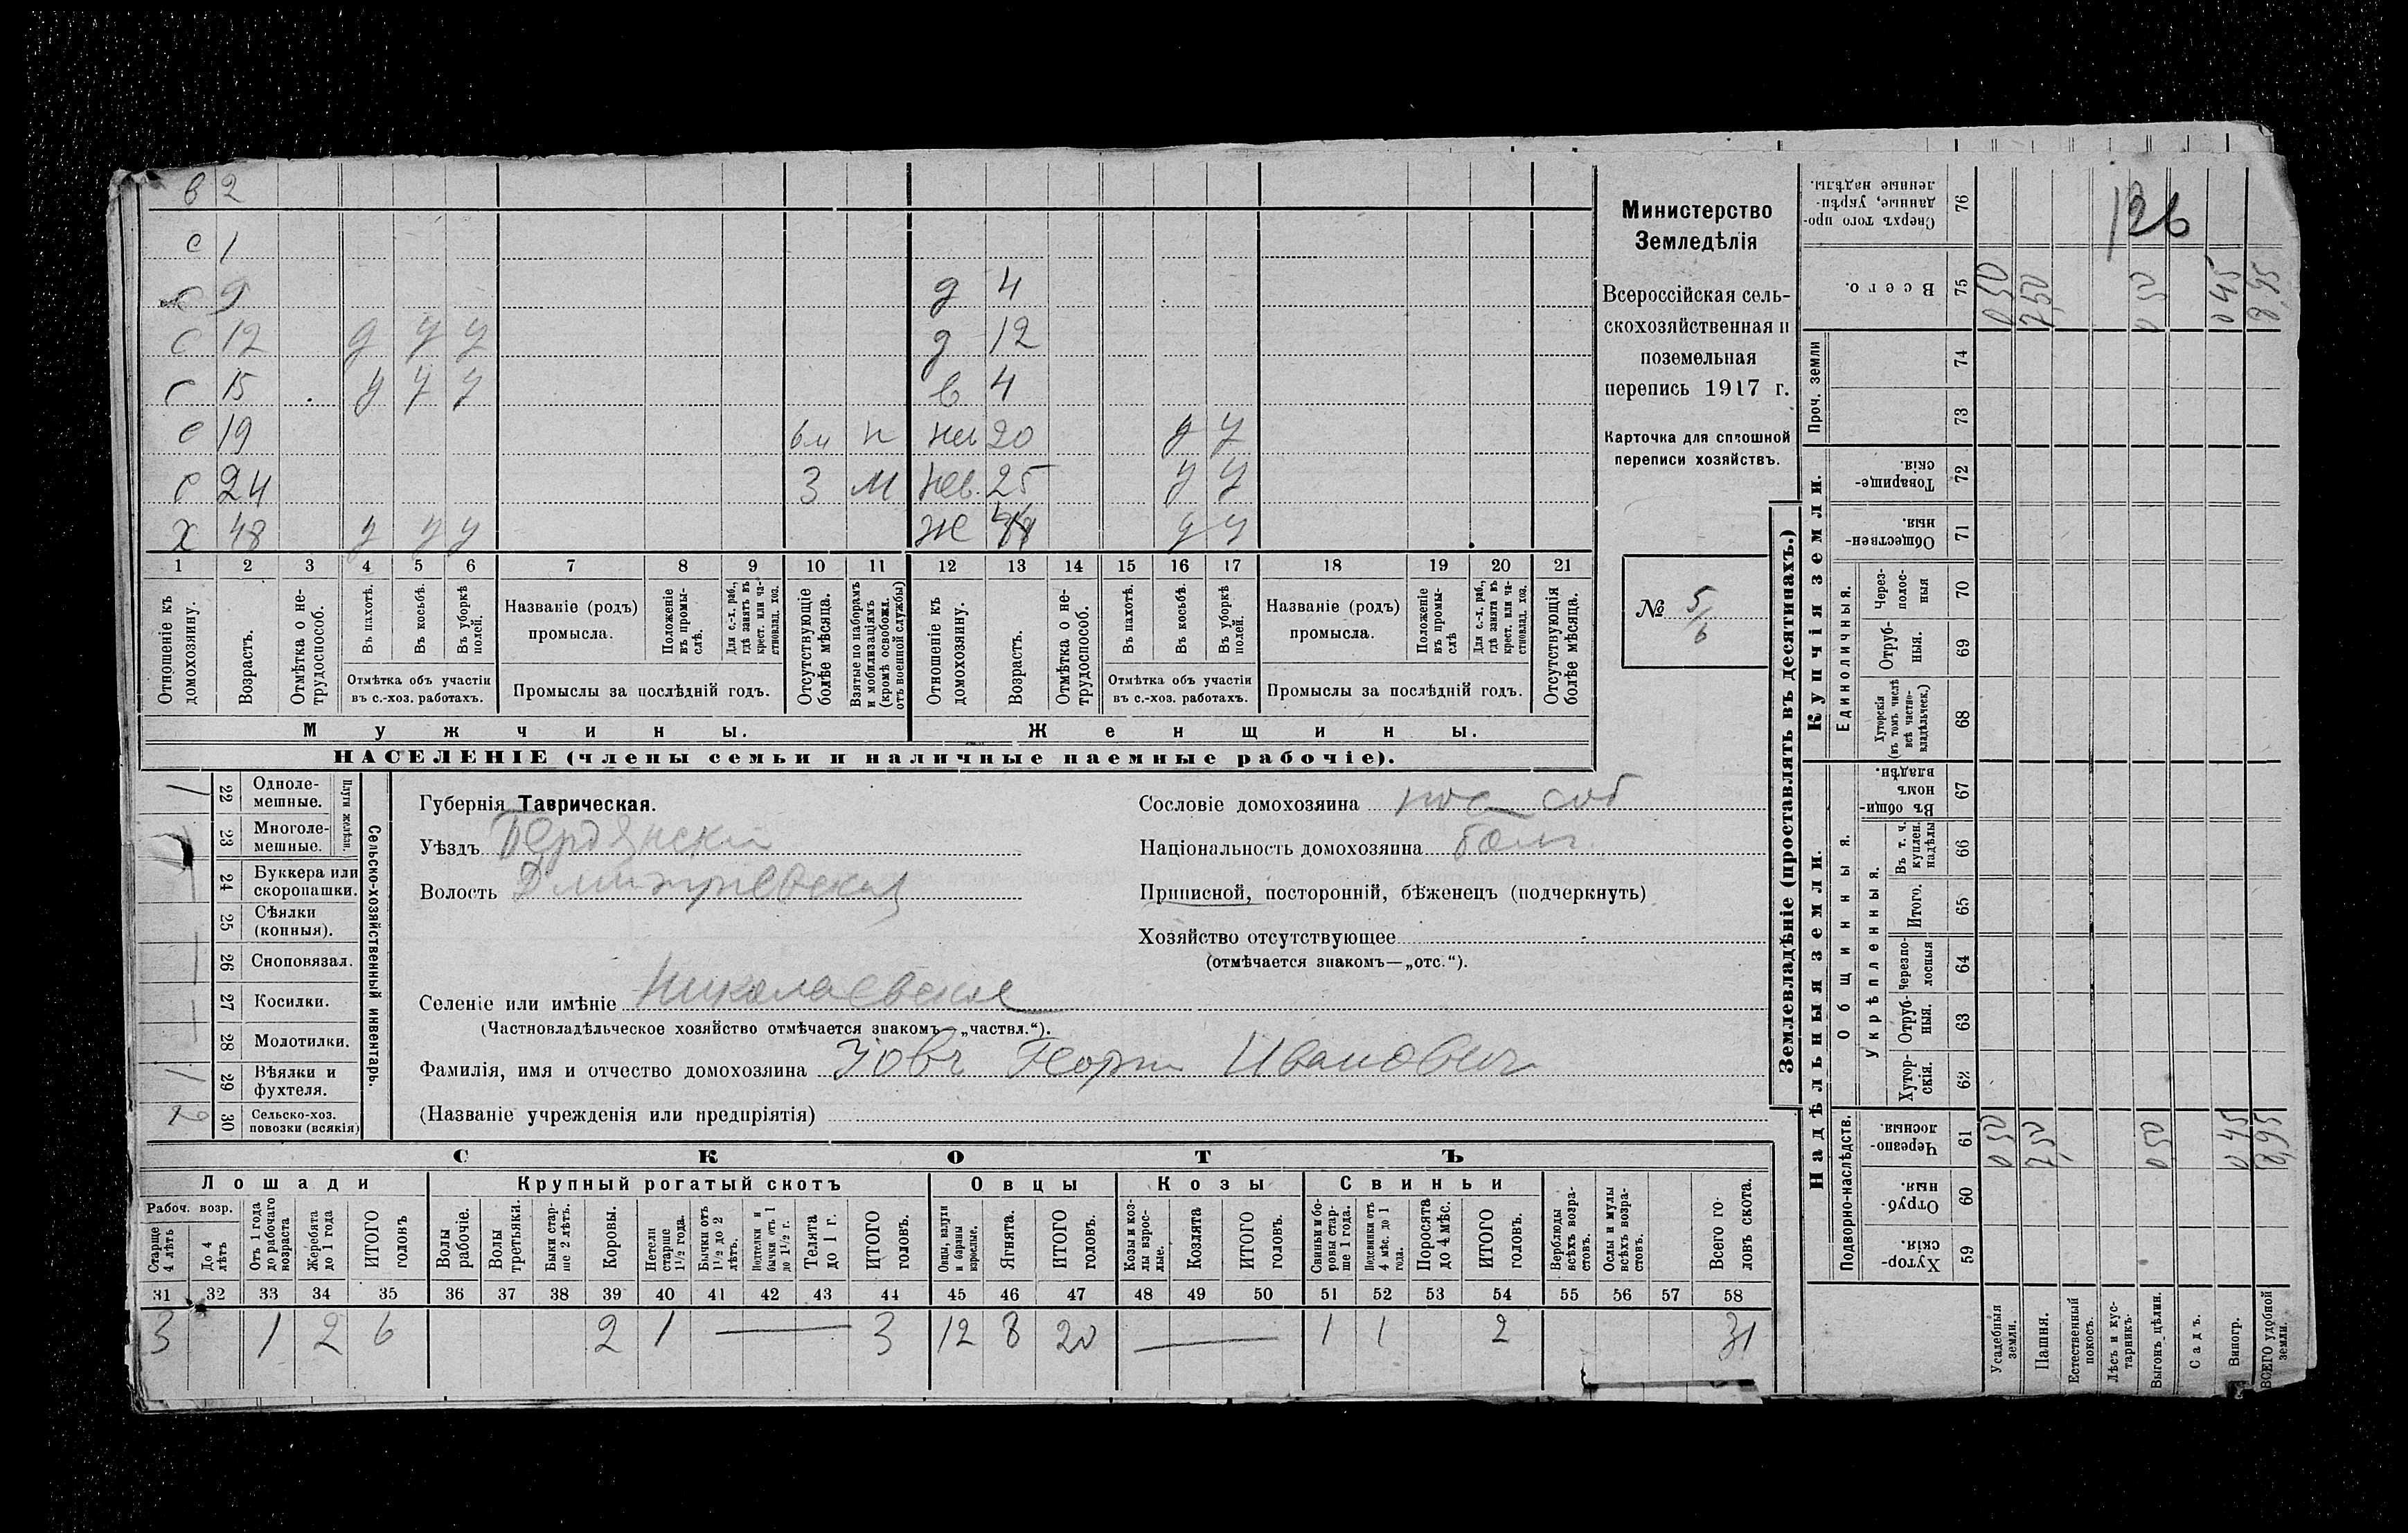 в 2
с 1
с 9 д 4
с 12 у у у д 12
с 15 у у у в 4
с 19 н 20 у у
с 24 З М нев. 25 у у
х 48 у у у ж у у
1 2 3 4 5 6 7 8 9 10 11 12 13 14 15 16 17 18 19 20 21
Отношеніе къ домохозяину.
Возрастъ.
Отмѣтка о нетрудоспособ.
Въ пахотѣ.
Въ косьбѣ.
Въ уборкѣ полей.
Отмѣтка объ участіи въ с.-хоз. работахъ.
Названіе (родъ) промысла.
Положеніе въ промыслѣ.
Для с.-х. раб., гдѣ занятъ въ крест. или частновлад. хоз.
Промыслы за послѣдній годъ.
Отсутствующіе болѣе мѣсяца.
Взятые по наборамъ и мобилизаціямъ (кромѣ освобожд. отъ военной службы)
Отношеніе къ домохозяину.
Возрастъ.
Отмѣтка о нетрудоспособ.
Въ пахотѣ.
Въ косьбѣ.
Въ уборкѣ полей.
Отмѣтка объ участіи въ с.-хоз. работахъ.
Названіе (родъ) промысла.
Положеніе въ промыслѣ
Для с.-х. раб., гдѣ занята въ крест. или частновлад. хоз.
Промыслы за послѣдній годъ.
Отсутствующія болѣе мѣсяца.
Мужчины. Женщины.
НАСЕЛЕНІЕ (члены семьи и наличные наемные рабочіе).
Министерство
Земледѣлія
Всероссійская сель-
скохозяйственная и
поземельная
перепись 1917 г.
Карточка для сплошной
переписи хозяйствъ.
№ 5/6
Сельско-хозяйственный инвентарь.
Плуги желѣзн.
1 22 Одноле-
мешные.
23 Многоле-
мешные.
24 Буккера или
скоропашки.
25 Сѣялки
(конныя).
26 Сноповязал.
27 Косилки.
28 Молотилки.
1 29 Вѣялки и
фухтеля.
2 30 Сельско-хоз.
повозки (всякія)
Губернія Таврическая.
Уѣздъ Бердянскій
Волость Дмитріевская
Селеніе или имѣніе Николаевское
(Частновладѣльческое хозяйство отмѣчается знакомъ—„частвл.“).
Фамилія, имя и отчество домохозяина Зовъ Георги Иванович
(Названіе учрежденія или предпріятія)
Сословіе домохозяина пос соб
Національность домохозяина болг.
Приписной, посторонній, бѣженецъ (подчеркнуть)
Хозяйство отсутствующее
(отмѣчается знакомъ—„отс.“).
СКОТЪ
Лошади Крупный рогатый скотъ Овцы Козы Свиньи
Рабоч. возр.
Старше 4 лѣтъ
До 4 лѣтъ
Отъ 1 года до рабочаго возраста
Жеребята до 1 года
ИТОГО головъ
Волы рабочіе.
Волы третьяки.
Быки старше 2 лѣтъ.
Коровы.
Нетели старше 1½ года.
Бычки отъ 1½ до 2 лѣтъ.
Подтелки и бычки отъ 1 до 1½ г.
Телята до 1 г.
ИТОГО головъ.
Овцы, валухи и бараны взрослые.
Ягнята.
ИТОГО головъ.
Козы и козлы взрослые.
Козлята
ИТОГО головъ.
Свиньи и боровы старше 1 года.
Подсвинки отъ 4 мѣс. до 1 года.
Поросята до 4 мѣс.
ИТОГО головъ.
Верблюды всѣхъ возрастовъ.
Ослы и мулы всѣхъ возрастовъ.
Всего головъ скота.
31 32 33 34 35 36 37 38 39 40 41 42 43 44 45 46 47 48 49 50 51 52 53 54 55 56 57 58
3 1 2 6 2 1 — 3 12 8 20 — 1 1 2 31
Землевладѣніе (проставлять въ десятинахъ.)
Надѣльныя земли. Купчія земли.
Подворно-наслѣдств.
Общинныя.
Укрѣпленныя.
Единоличныя.
Проч. земли
Хуторскія 59
Отрубныя. 60
Черезполосныя. 61
Хуторскія. 62
Отрубныя. 63
Черезполосныя 64
Итого. 65
Въ т. ч. куплен. надѣлы 66
Въ общинномъ владѣн. 67
Хуторскія (въ томъ числѣ всѣ частновладѣльческ.) 68
Отрубныя. 69
Черезполосныя 70
Общественныя. 71
Товарищескія. 72
73
74
Всего. 75
Сверхъ того проданные, укрѣпленные надѣлы. 76
126
Усадебныя земли. 0,50 0,50
Пашня. 7,50 7,50
Естественный покосъ.
Лѣсъ и кустарникъ.
Выгонъ, цѣлин. 0,50 0,50
Садъ.
Виногр. 0,45 0,45
ВСЕГО удобной земли. 8,95 8,95